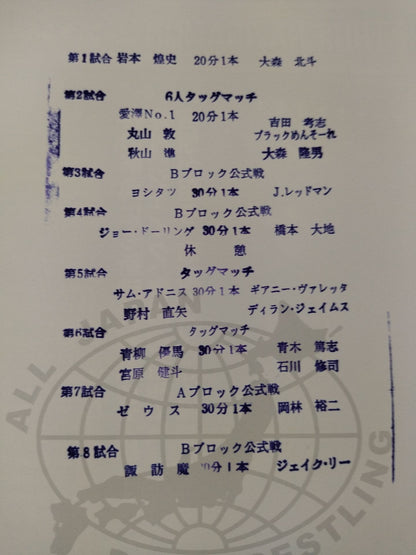 第1試合 岩本 煌史 20分1本 大森 北斗
第2試合 6人タッグマッチ
愛澤No.1 20分1本 吉田 考志
丸山 敦 ブラックめんそーれ
秋山 準 大森 隆男
第3試合 Bブロック公式戦
ヨシタツ 30分1本 J.レッドマン
第4試合 Bブロック公式戦
ジョー・ドーリング 30分1本 橋本 大地
休 憩
第5試合 タッグマッチ
サム・アドニス 30分1本 ギアニー・ヴァレッタ
野村 直矢 ディラン・ジェイムス
第6試合 タッグマッチ
青柳 優馬 30分1本 青木 篤志
宮原 健斗 石川 修司
第7試合 Aブロック公式戦
ゼウス 30分1本 岡林 裕二
第8試合 Bブロック公式戦
諏訪魔 30分1本 ジェイク・リー
ALL JAPAN